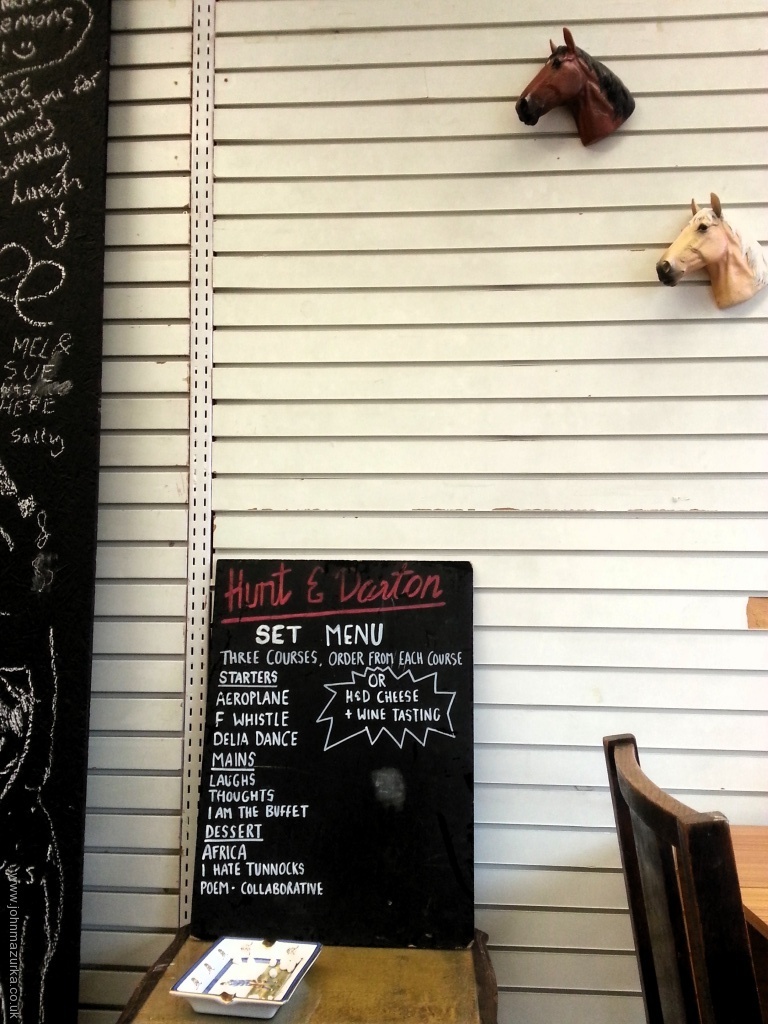 emons
you for
lovely
Lunch
MEL &
SUE
HERE
Sally
Hunt & Darton
SET MENU
THREE COURSES, ORDER FROM EACH COURSE
STARTERS
AEROPLANE
F WHISTLE
DELIA DANCE
OR
H&D CHEESE
+ WINE TASTING
MAINS
LAUGHS
THOUGHTS
I AM THE BUFFET
DESSERT
AFRICA
I HATE TUNNOCKS
POEM - COLLABORATIVE
www.johnmazurka.co.uk